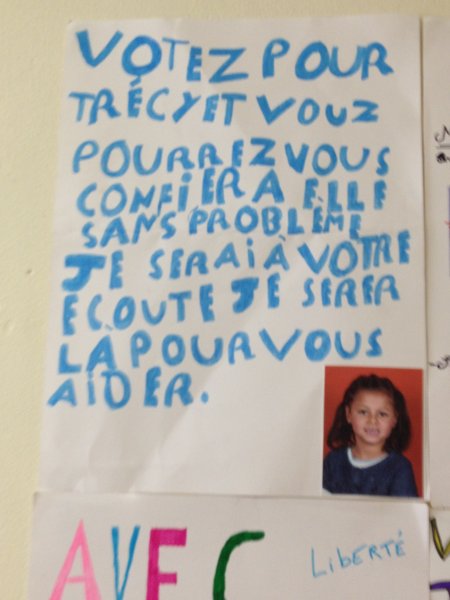 VOTEZ POUR
TRÉCY ET VOUZ
POURREZ VOUS
CONFIER A ELLE
SANS PROBLÈME
JE SERAI À VOTRE
ECOUTE JE SERER
LÀ POUR VOUS
AIDER.
AVEC
LIBERTÉ